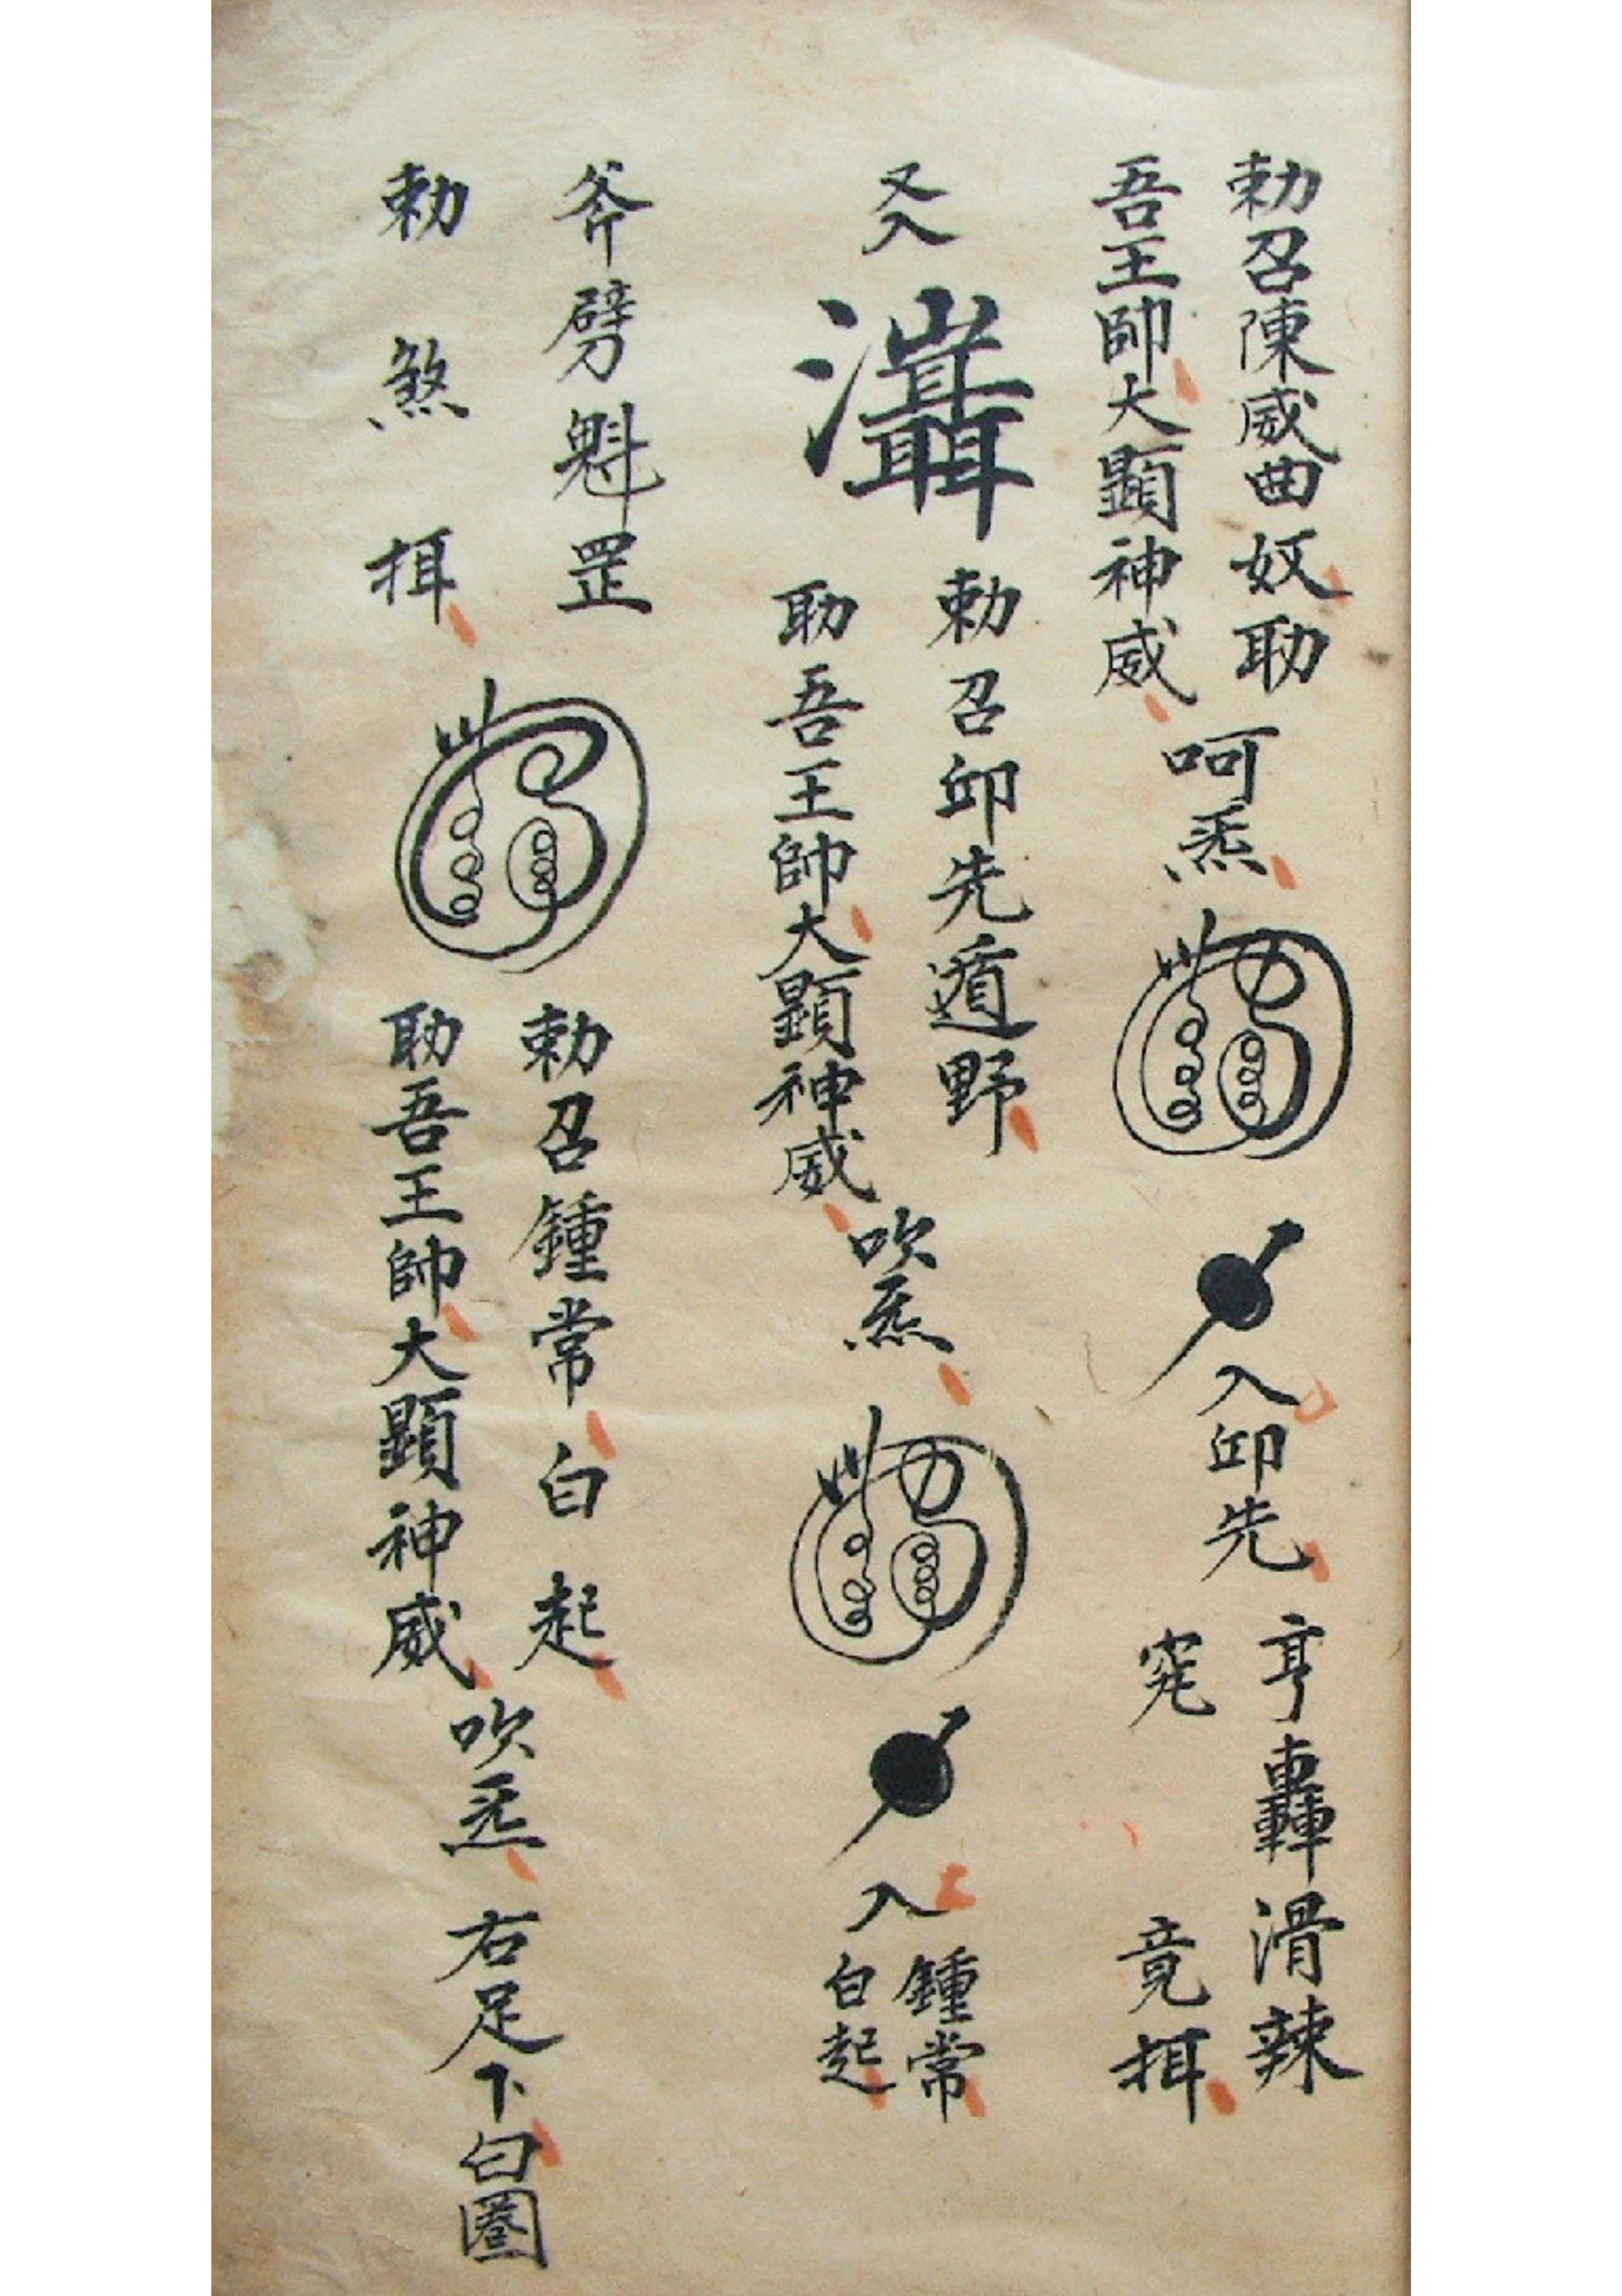 勅召陳威曲奴助
吾王帥大顯神威
呵炁
入卬先
亨轟滑辣
窀
竟挕
又入
勅召卬先遁野
助吾王帥大顯神威
吹炁
入
鍾常
白起
斧劈魁罡
勅煞挕
勅召鍾常白起
助吾王帥大顯神威
吹炁
右足下白圈